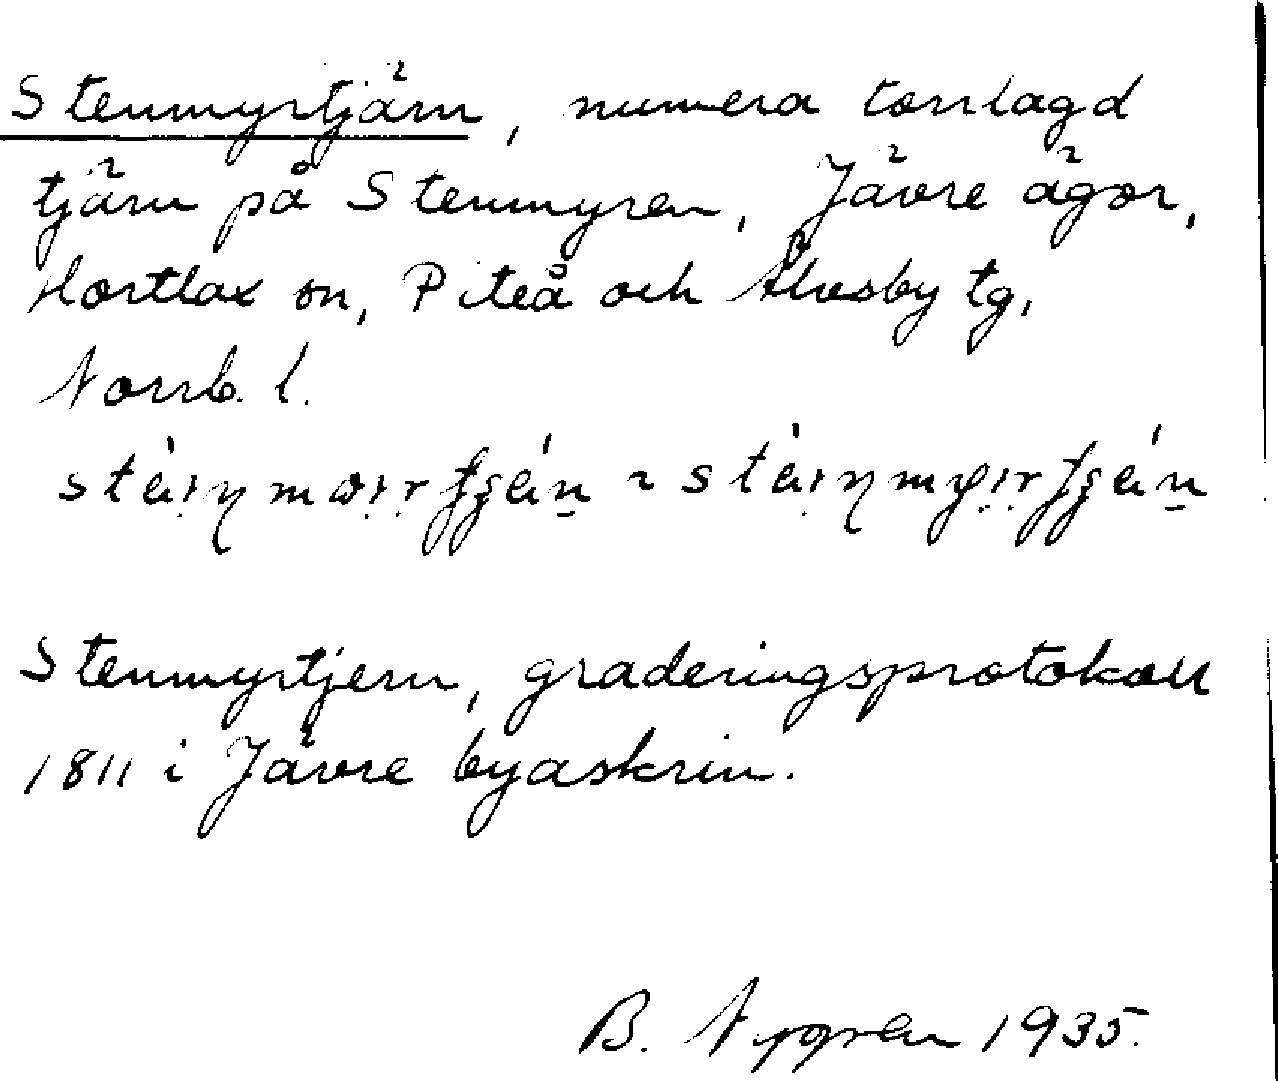 Stenmyrtjärn, numera torrlagd
tjärn på Stenmyren, Jävre ägor,
Hortlax sn, Piteå och Älvsby tg,
Norrb. l.
Stenmyrtjern, graderingsprotokoll
1811 i Jävre byaskrin.
B. Nygren 1935.